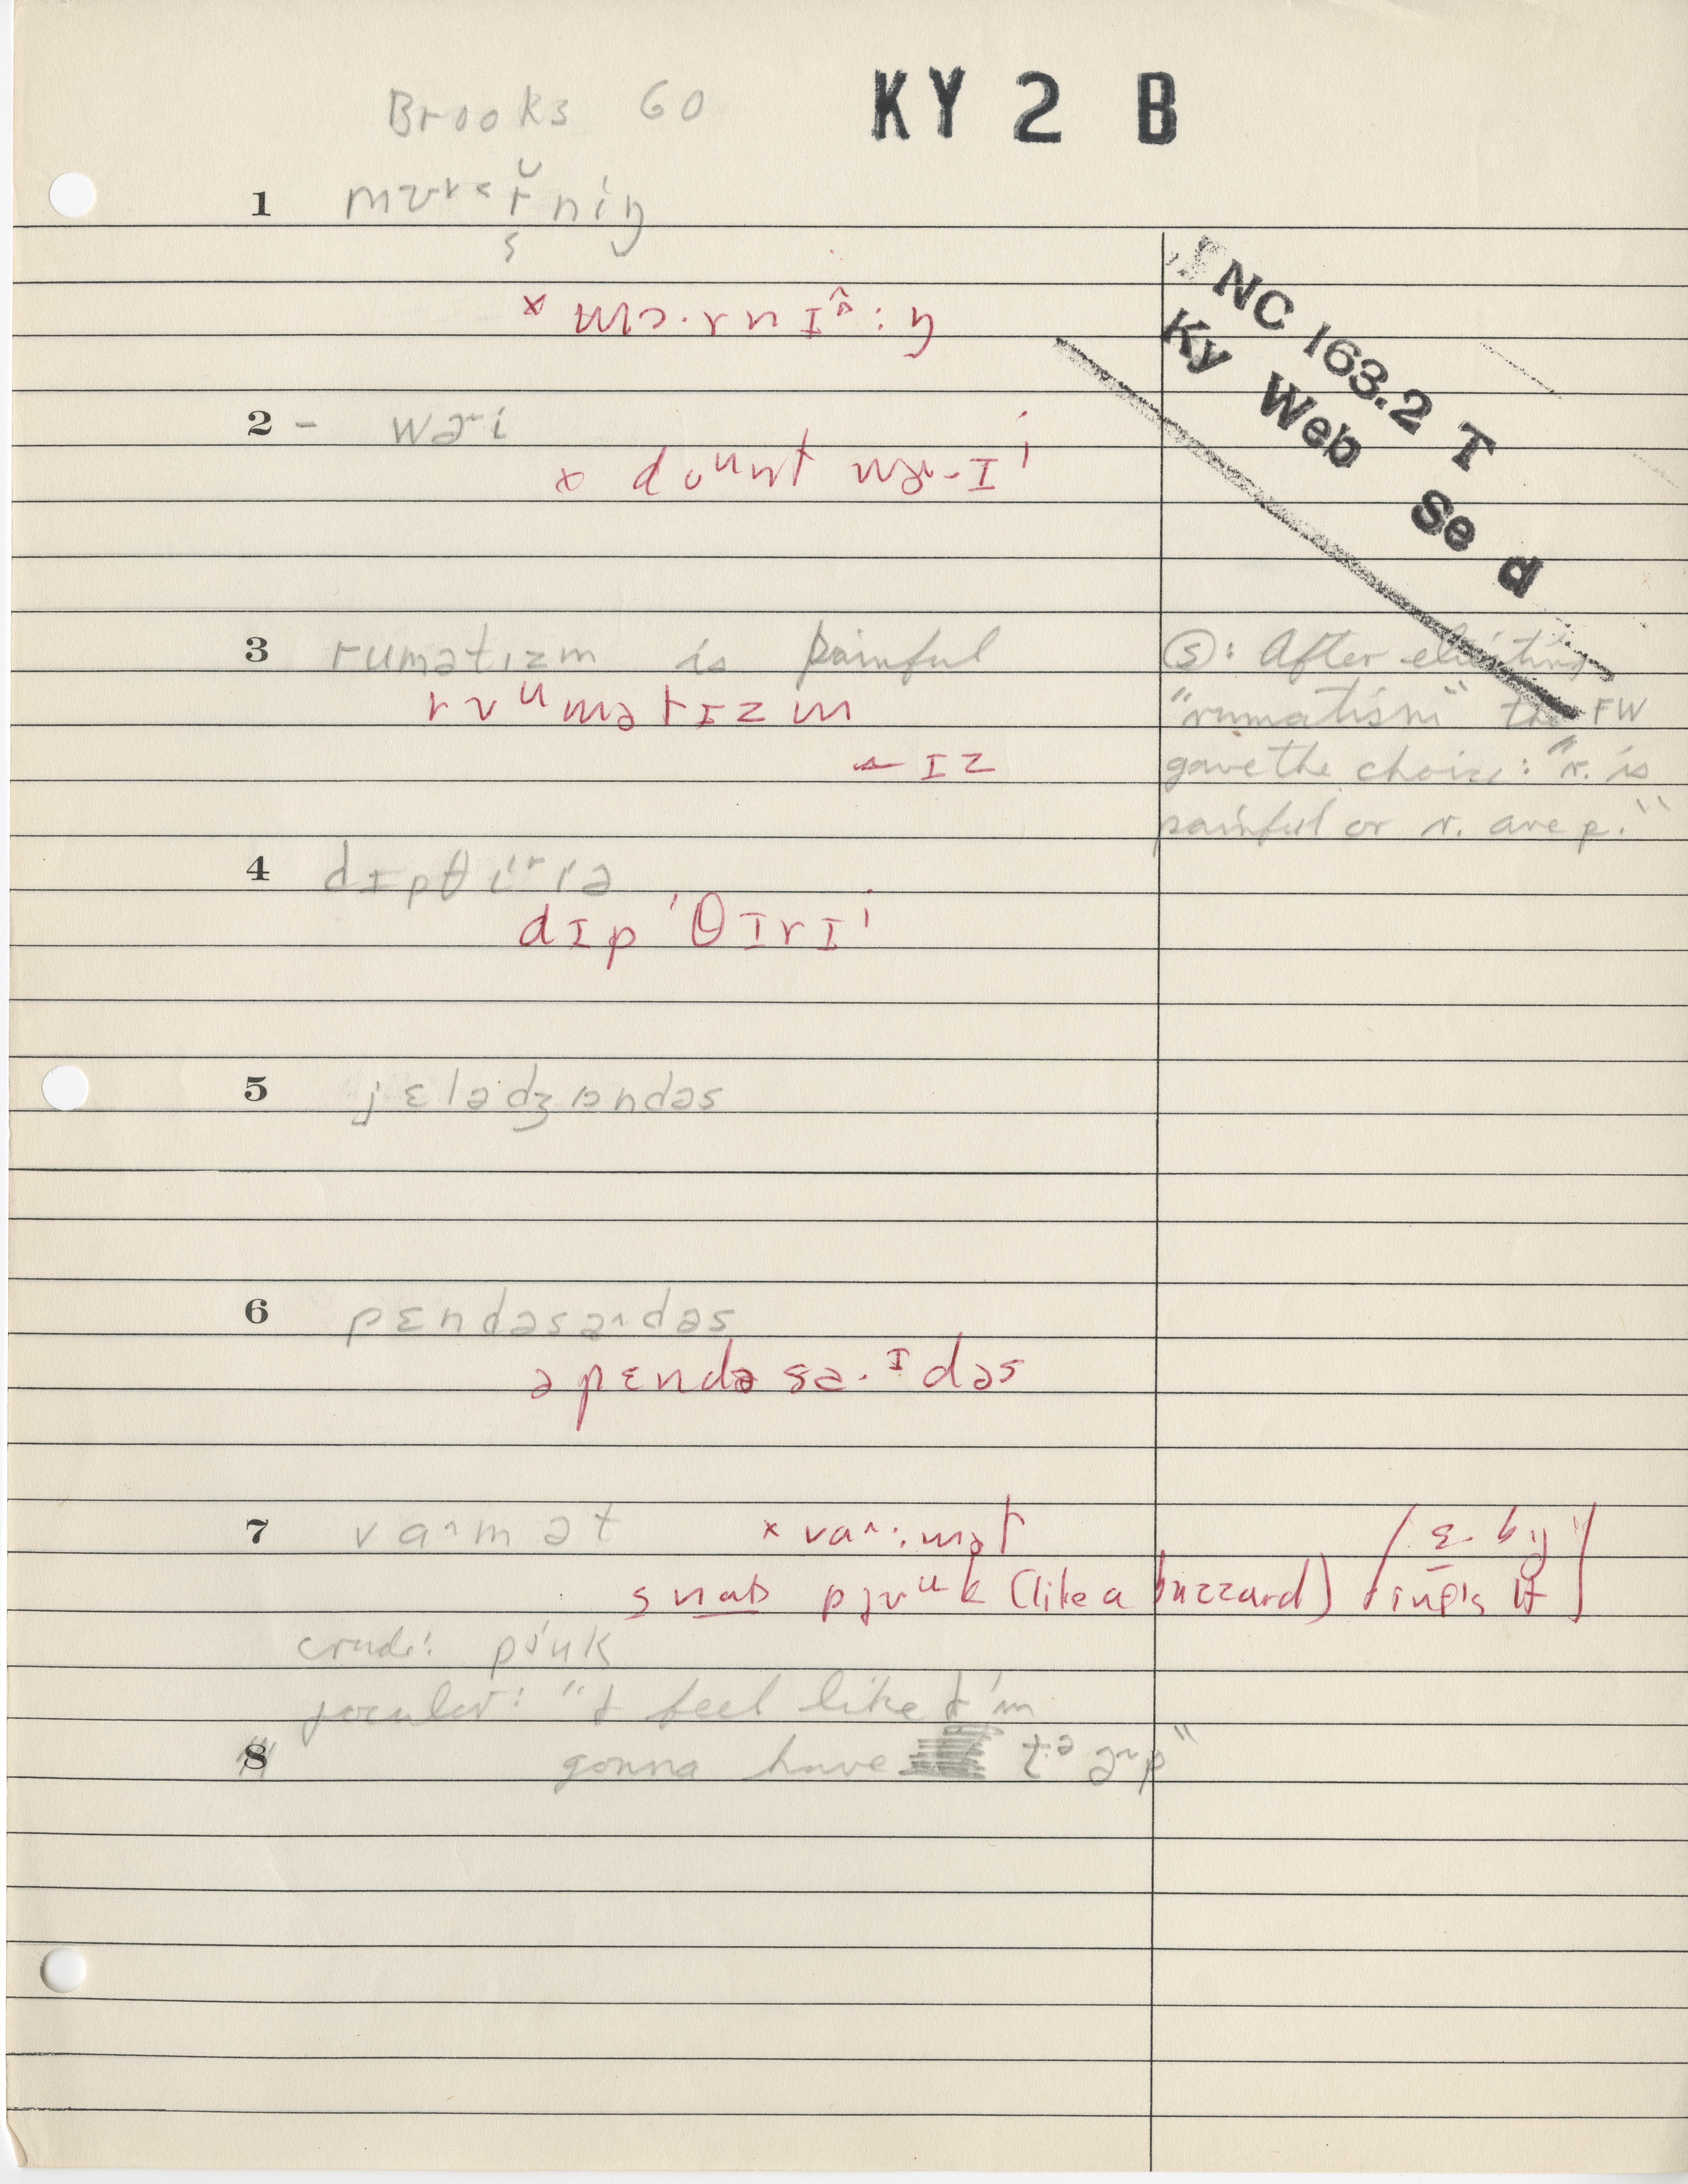 Brooks 60 KY 2 B
1
× mɔ·rnɪ^:ŋ
NC 163.2 T
Ky Web Se d
2 - wɚi
× doᵘnt wɚ-ɪ'
3 rumatɪzm is painful
rʊᵘmətɪzm
← ɪz
Ⓢ: After eliciting
"rumatism" the FW
gave the choice: "r. is
painful or r. are p."
4 dɪpθiʳiə
dɪp'θɪrɪ'
5 jɛlədʒɒndəs
6 pɛndəsa^dəs
əpɛndəsa·ɪdəs
7 va^mət × va^:mət
snab pjʊᵘk (like a buzzard) [Σ. by inf's W]
crude: pjuk
jocular: "I feel like I'm
8 gonna have tᵊɚp"